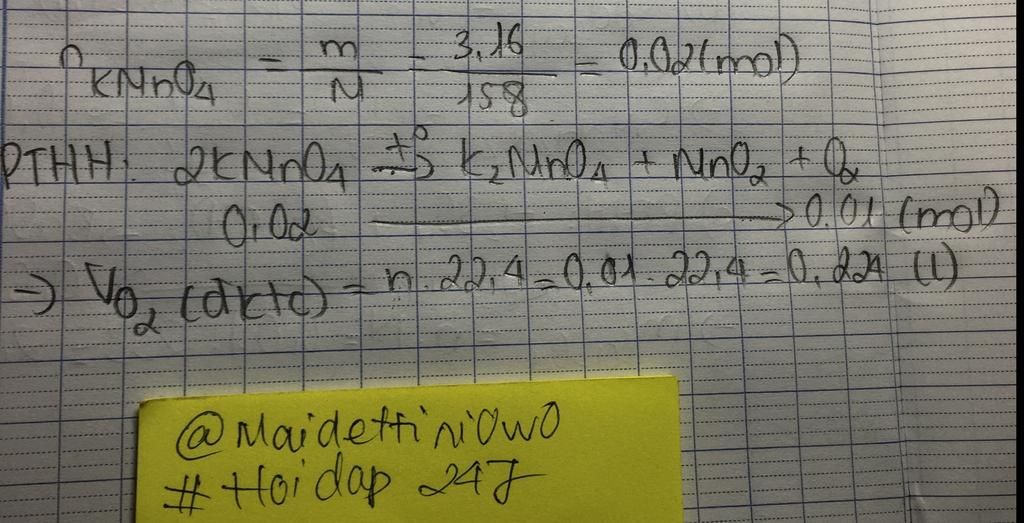 nKMnO4 = m/M = 3,16/158 = 0,02(mol)
PTHH: 2KMnO4 t°→ K2MnO4 + MnO2 + O2
0,02 → 0,01 (mol)
=> VO2 (đktc) = n.22,4 = 0,01.22,4 = 0,224 (l)
@MaidettiniOwO
#Hoidap 247